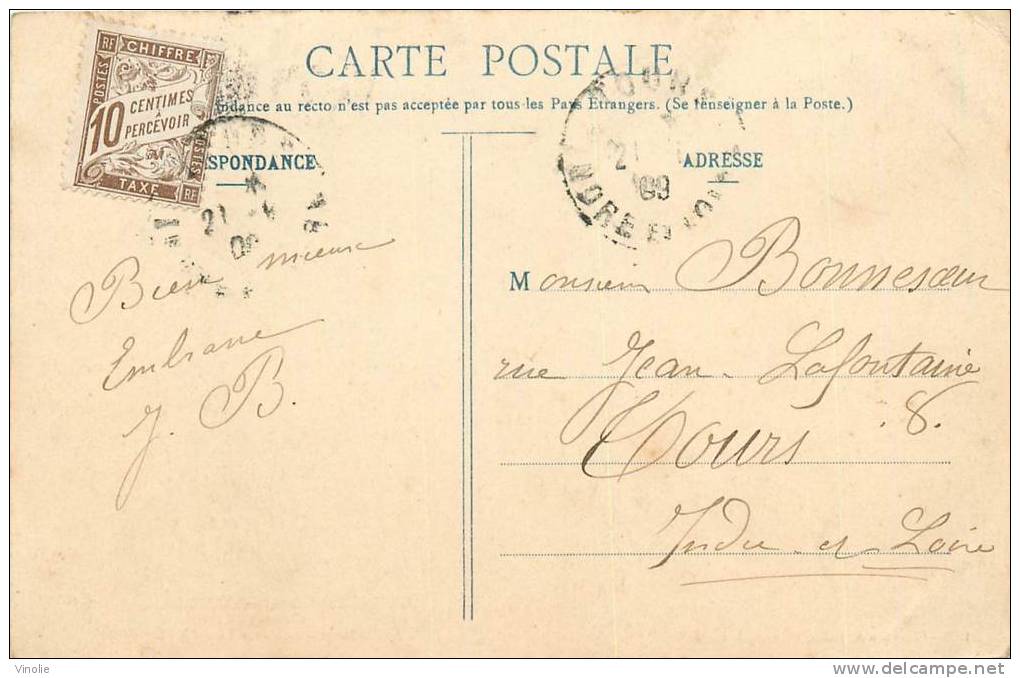 CARTE POSTALE
ndance au recto n'est pas acceptée par tous les Pays Etrangers. (Se renseigner à la Poste.)
RF CHIFFRE
POSTES
10 CENTIMES
A
PERCEVOIR
POSTES
TAXE RF
SPONDANCE
ADRESSE
TOURS
21
09
INDRE ET LOIRE
21
09
Bien mieux
Embrasse
J. B.
Monsieur Bonnesœur
rue Jean Lafontaine
8.
Tours
Indre et Loire
Vinolie
www.delcampe.net